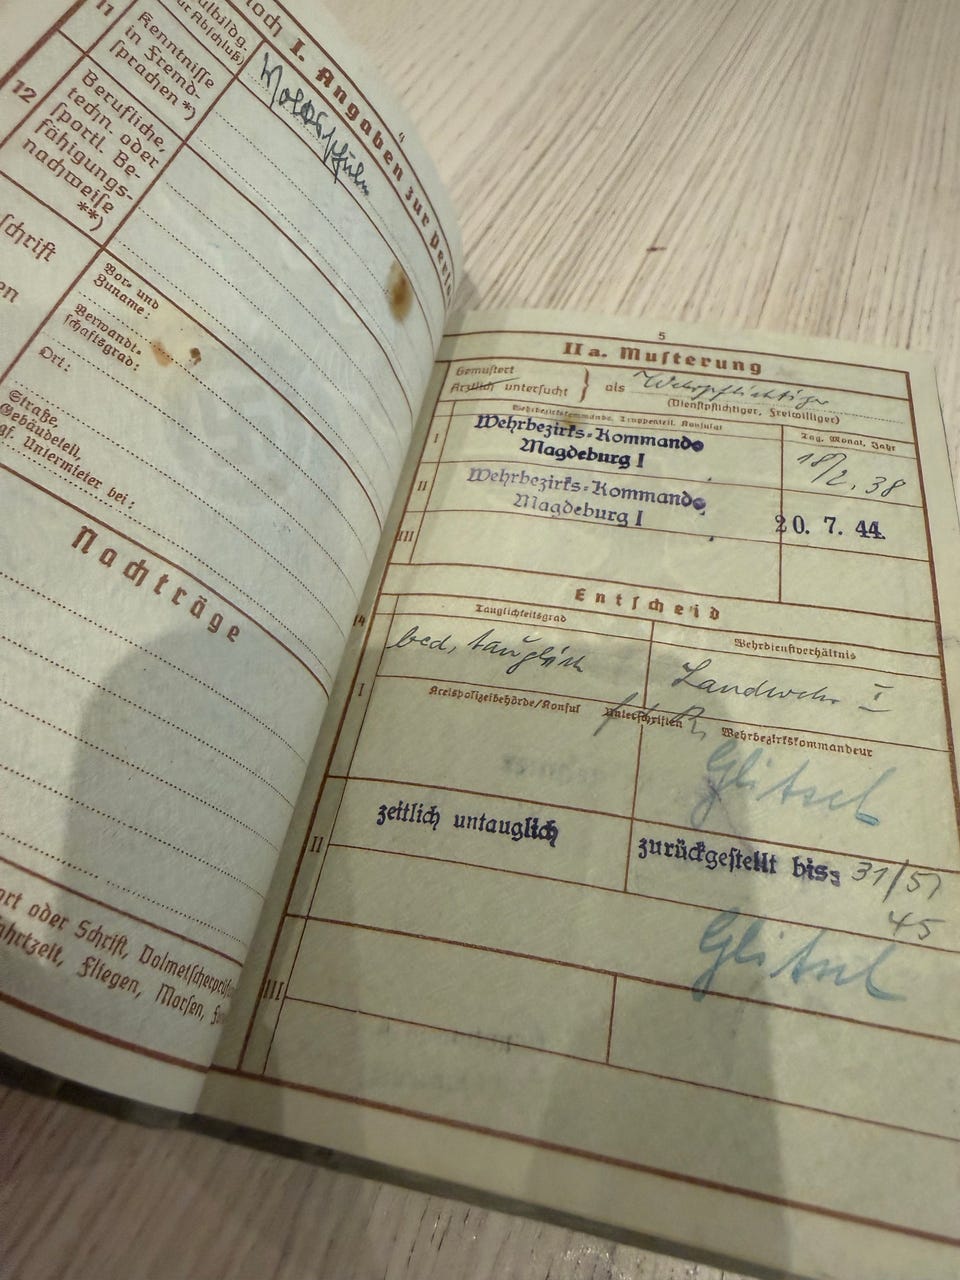 noch I. Angaben zur Pers
11
Kenntnisse
in Fremd-
sprachen *)
12
Berufliche,
techn. oder
sportl. Be-
fähigungs-
nachweise
**)
schrift
en
Vor- und
Zuname:
Verwandt-
schaftsgrad:
Ort:
Straße,
Gebäudeteil,
gf. Untermieter bei:
Nachträge
ort oder Schrift, Dolmetscherprüf
ahrtzeit, Fliegen, Morsen, Fun
5
II a. Musterung
Gemustert
Ärztlich untersucht } als Wehrpflichtiger
(Dienstpflichtiger, Freiwilliger)
Wehrbezirkskommando, Truppenteil, Konsulat
Tag, Monat, Jahr
I Wehrbezirks-Kommando
Magdeburg I
18/2. 38
II Wehrbezirks-Kommando
Magdeburg I
20. 7. 44.
III
Entscheid
14
Tauglichkeitsgrad
Wehrdienstverhältnis
I
bed. tauglich
Landwehr I
Kreispolizeibehörde/Konsul
Unterschriften
Wehrbezirkskommandeur
Glitsch
II
zeitlich untauglich
zurückgestellt bis: 31/5
45
Glitsch
III